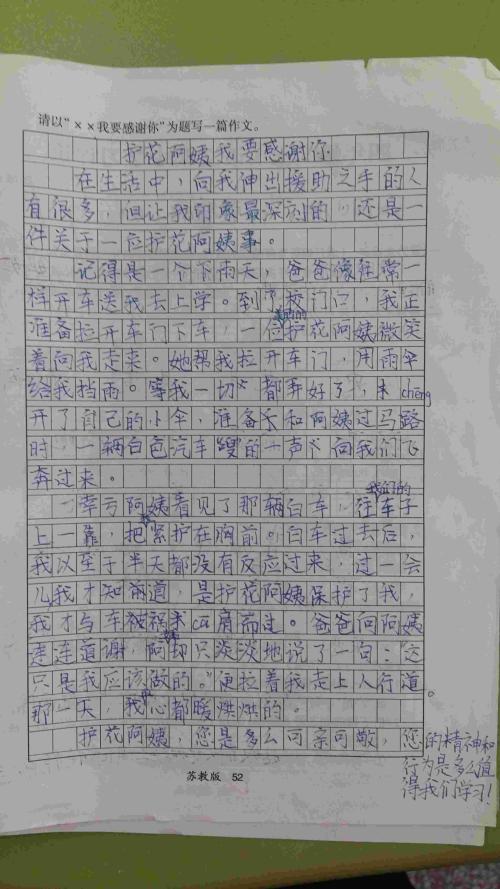 请以“××我要感谢你”为题写一篇作文。
护花阿姨我要感谢你
在生活中，向我伸出援助之手的人
有很多，但让我印象最深刻的还是一
件关于一位护花阿姨事。
记得是一个下雨天，爸爸像往常一
样开车送我去上学。到了校门口，我正
准备拉开车门下车，一位护花阿姨微笑
着向我走来。她帮我拉开车门，用雨伞
给我挡雨。等我一切都弄好了，chēng
开了自己的小伞，准备和阿姨过马路
时，一辆白色汽车“嗖”的一声向我们飞
奔过来。
幸亏阿姨看见了那辆白车，往我们的车子
上一靠，把我紧护在胸前。白车过去后，
我以至于半天都没有反应过来，过一会
儿我才知道，是护花阿姨保护了我，
我才与车cā肩而过。爸爸向阿姨
连连道谢，阿姨却只淡淡地说了一句：“这
只是我应该做的。”便拉着我走上人行道。
那一天，我的心都暖烘烘的。
护花阿姨，您是多么可亲可敬，您的精神和
行为是多么值
得我们学习！
苏教版 52